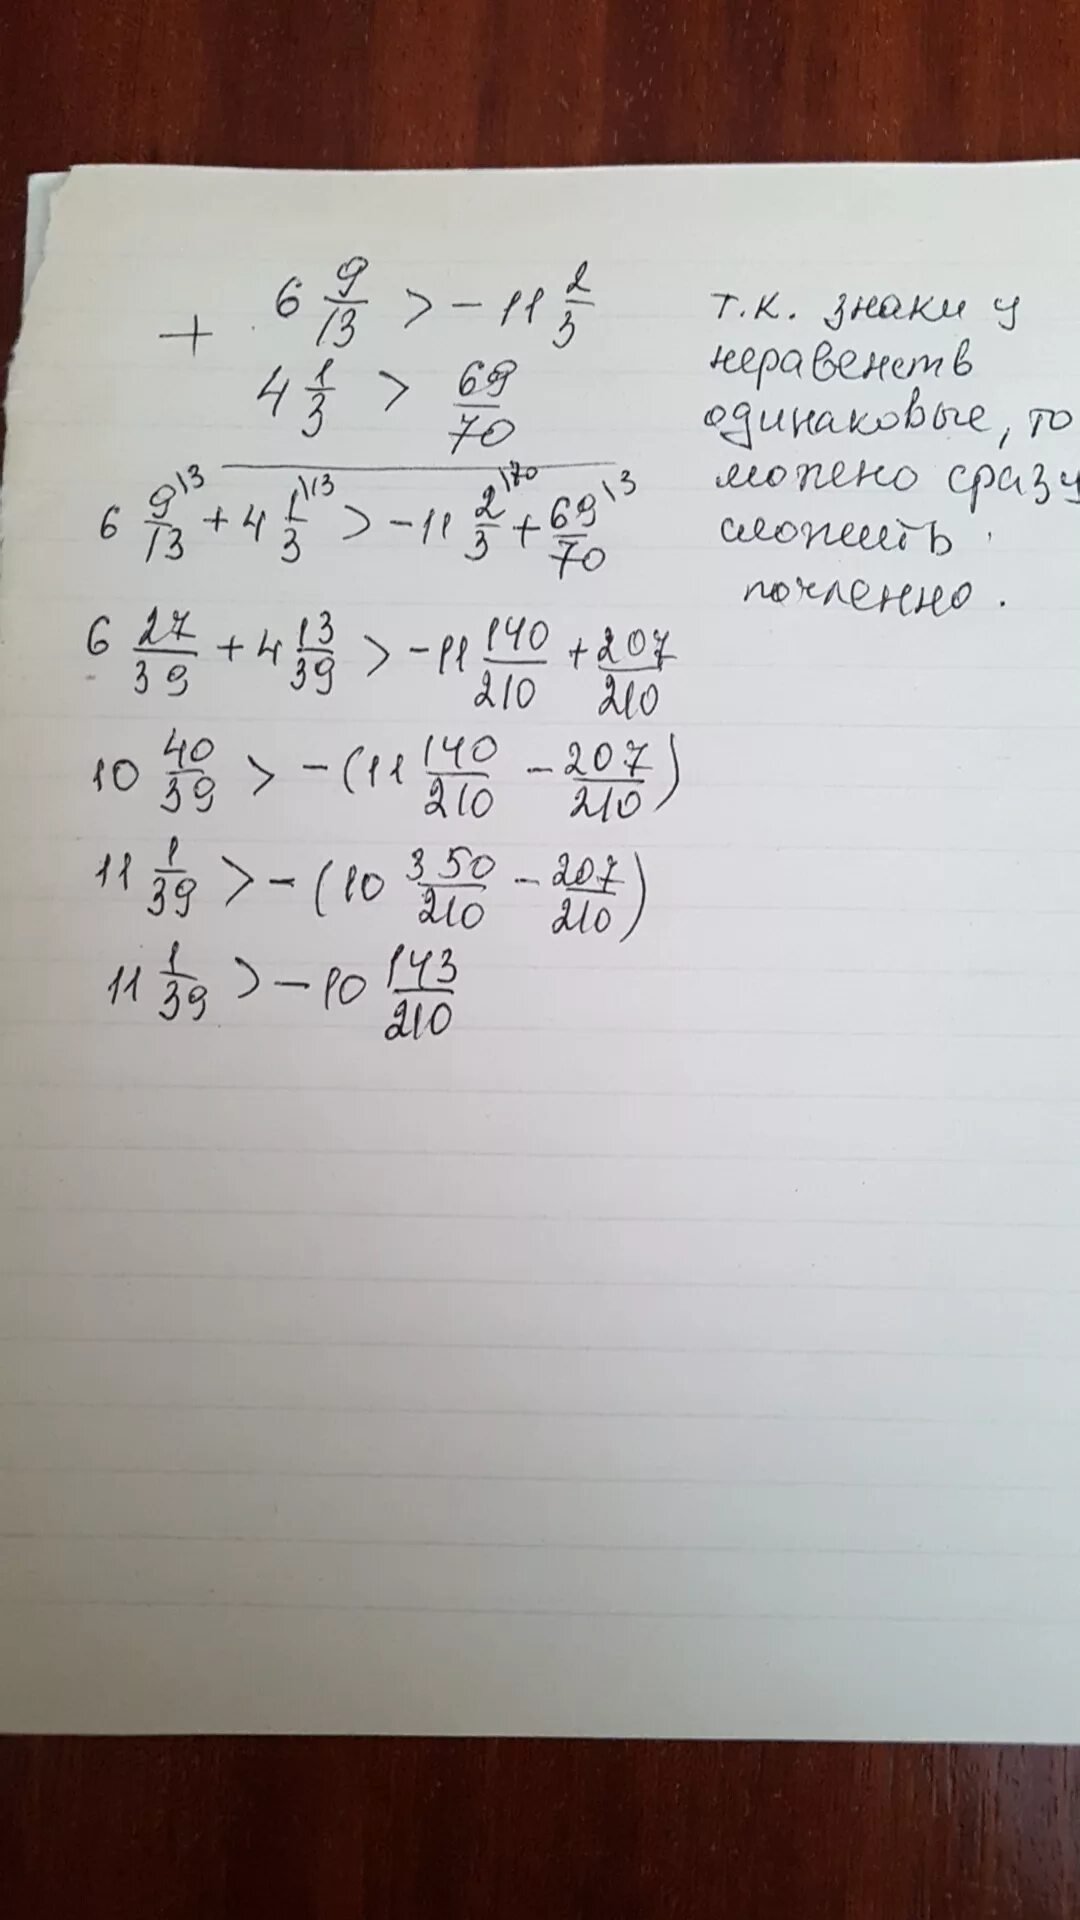 + 6 9/13 > - 11 2/3
4 1/3 > 69/70
6 9\3/13 + 4 1\13/3 > - 11 2\70/3 + 69\3/70
6 27/39 + 4 13/39 > - 11 140/210 + 207/210
10 40/39 > - (11 140/210 - 207/210)
11 1/39 > - (10 350/210 - 207/210)
11 1/39 > - 10 143/210
т.к. знаки у
неравенств
одинаковые, то
можно сразу
сложить
почленно.